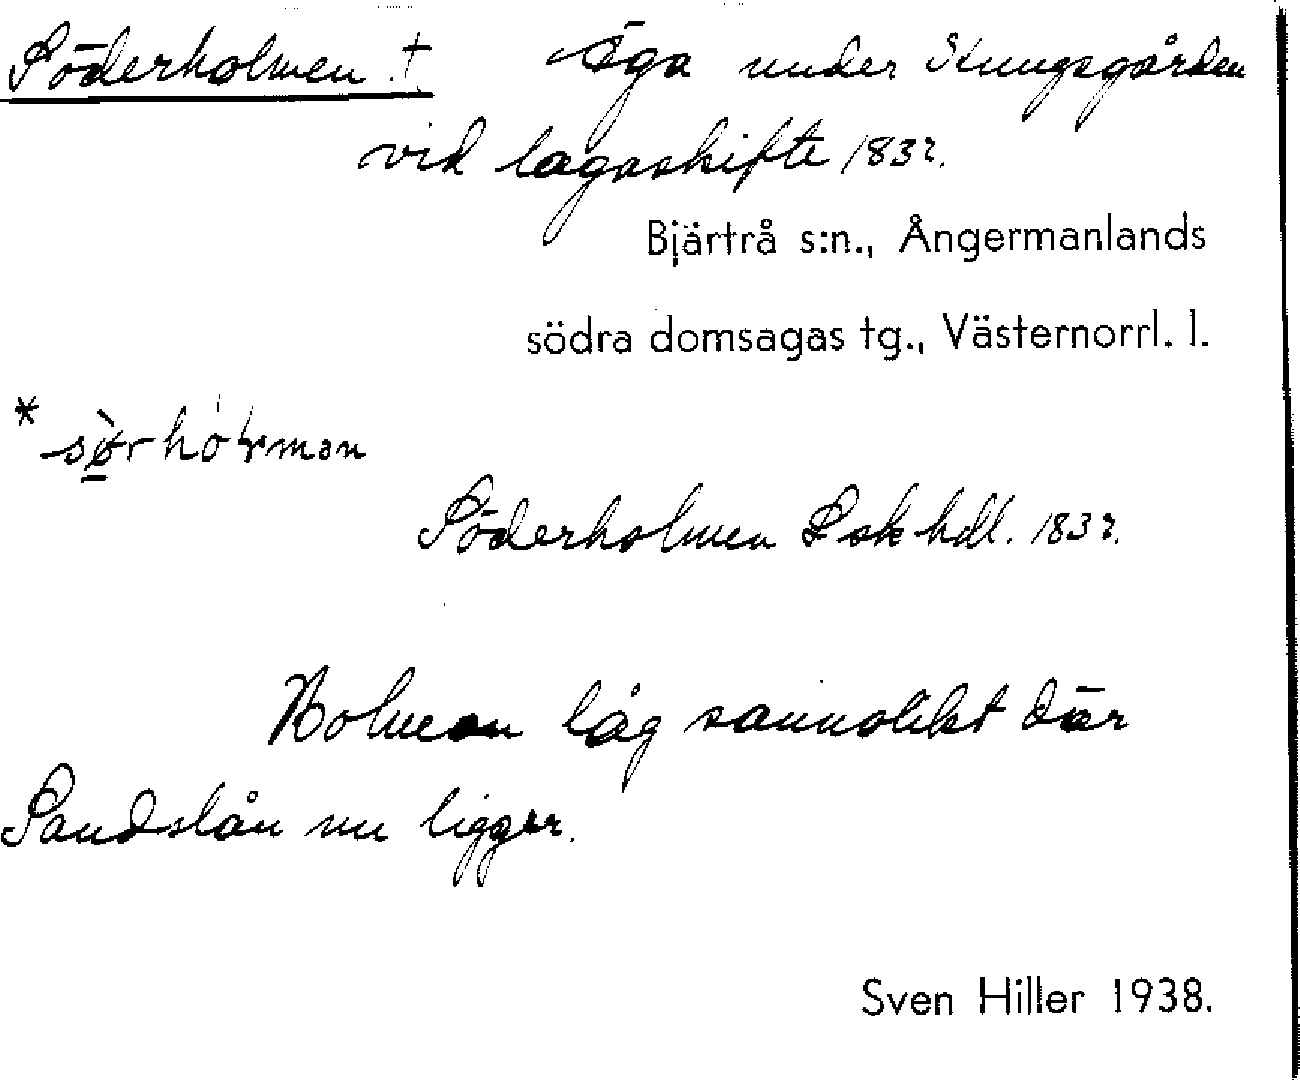 Söderholmen † Äga under Kungsgården
vid lagaskifte 1832.
Bjärtrå s:n., Ångermanlands
södra domsagas tg., Västernorrl. l.
Söderholmen Lsk hdl. 1832.
Holmen låg sannolikt där
Sandslån nu ligger.
Sven Hiller 1938.